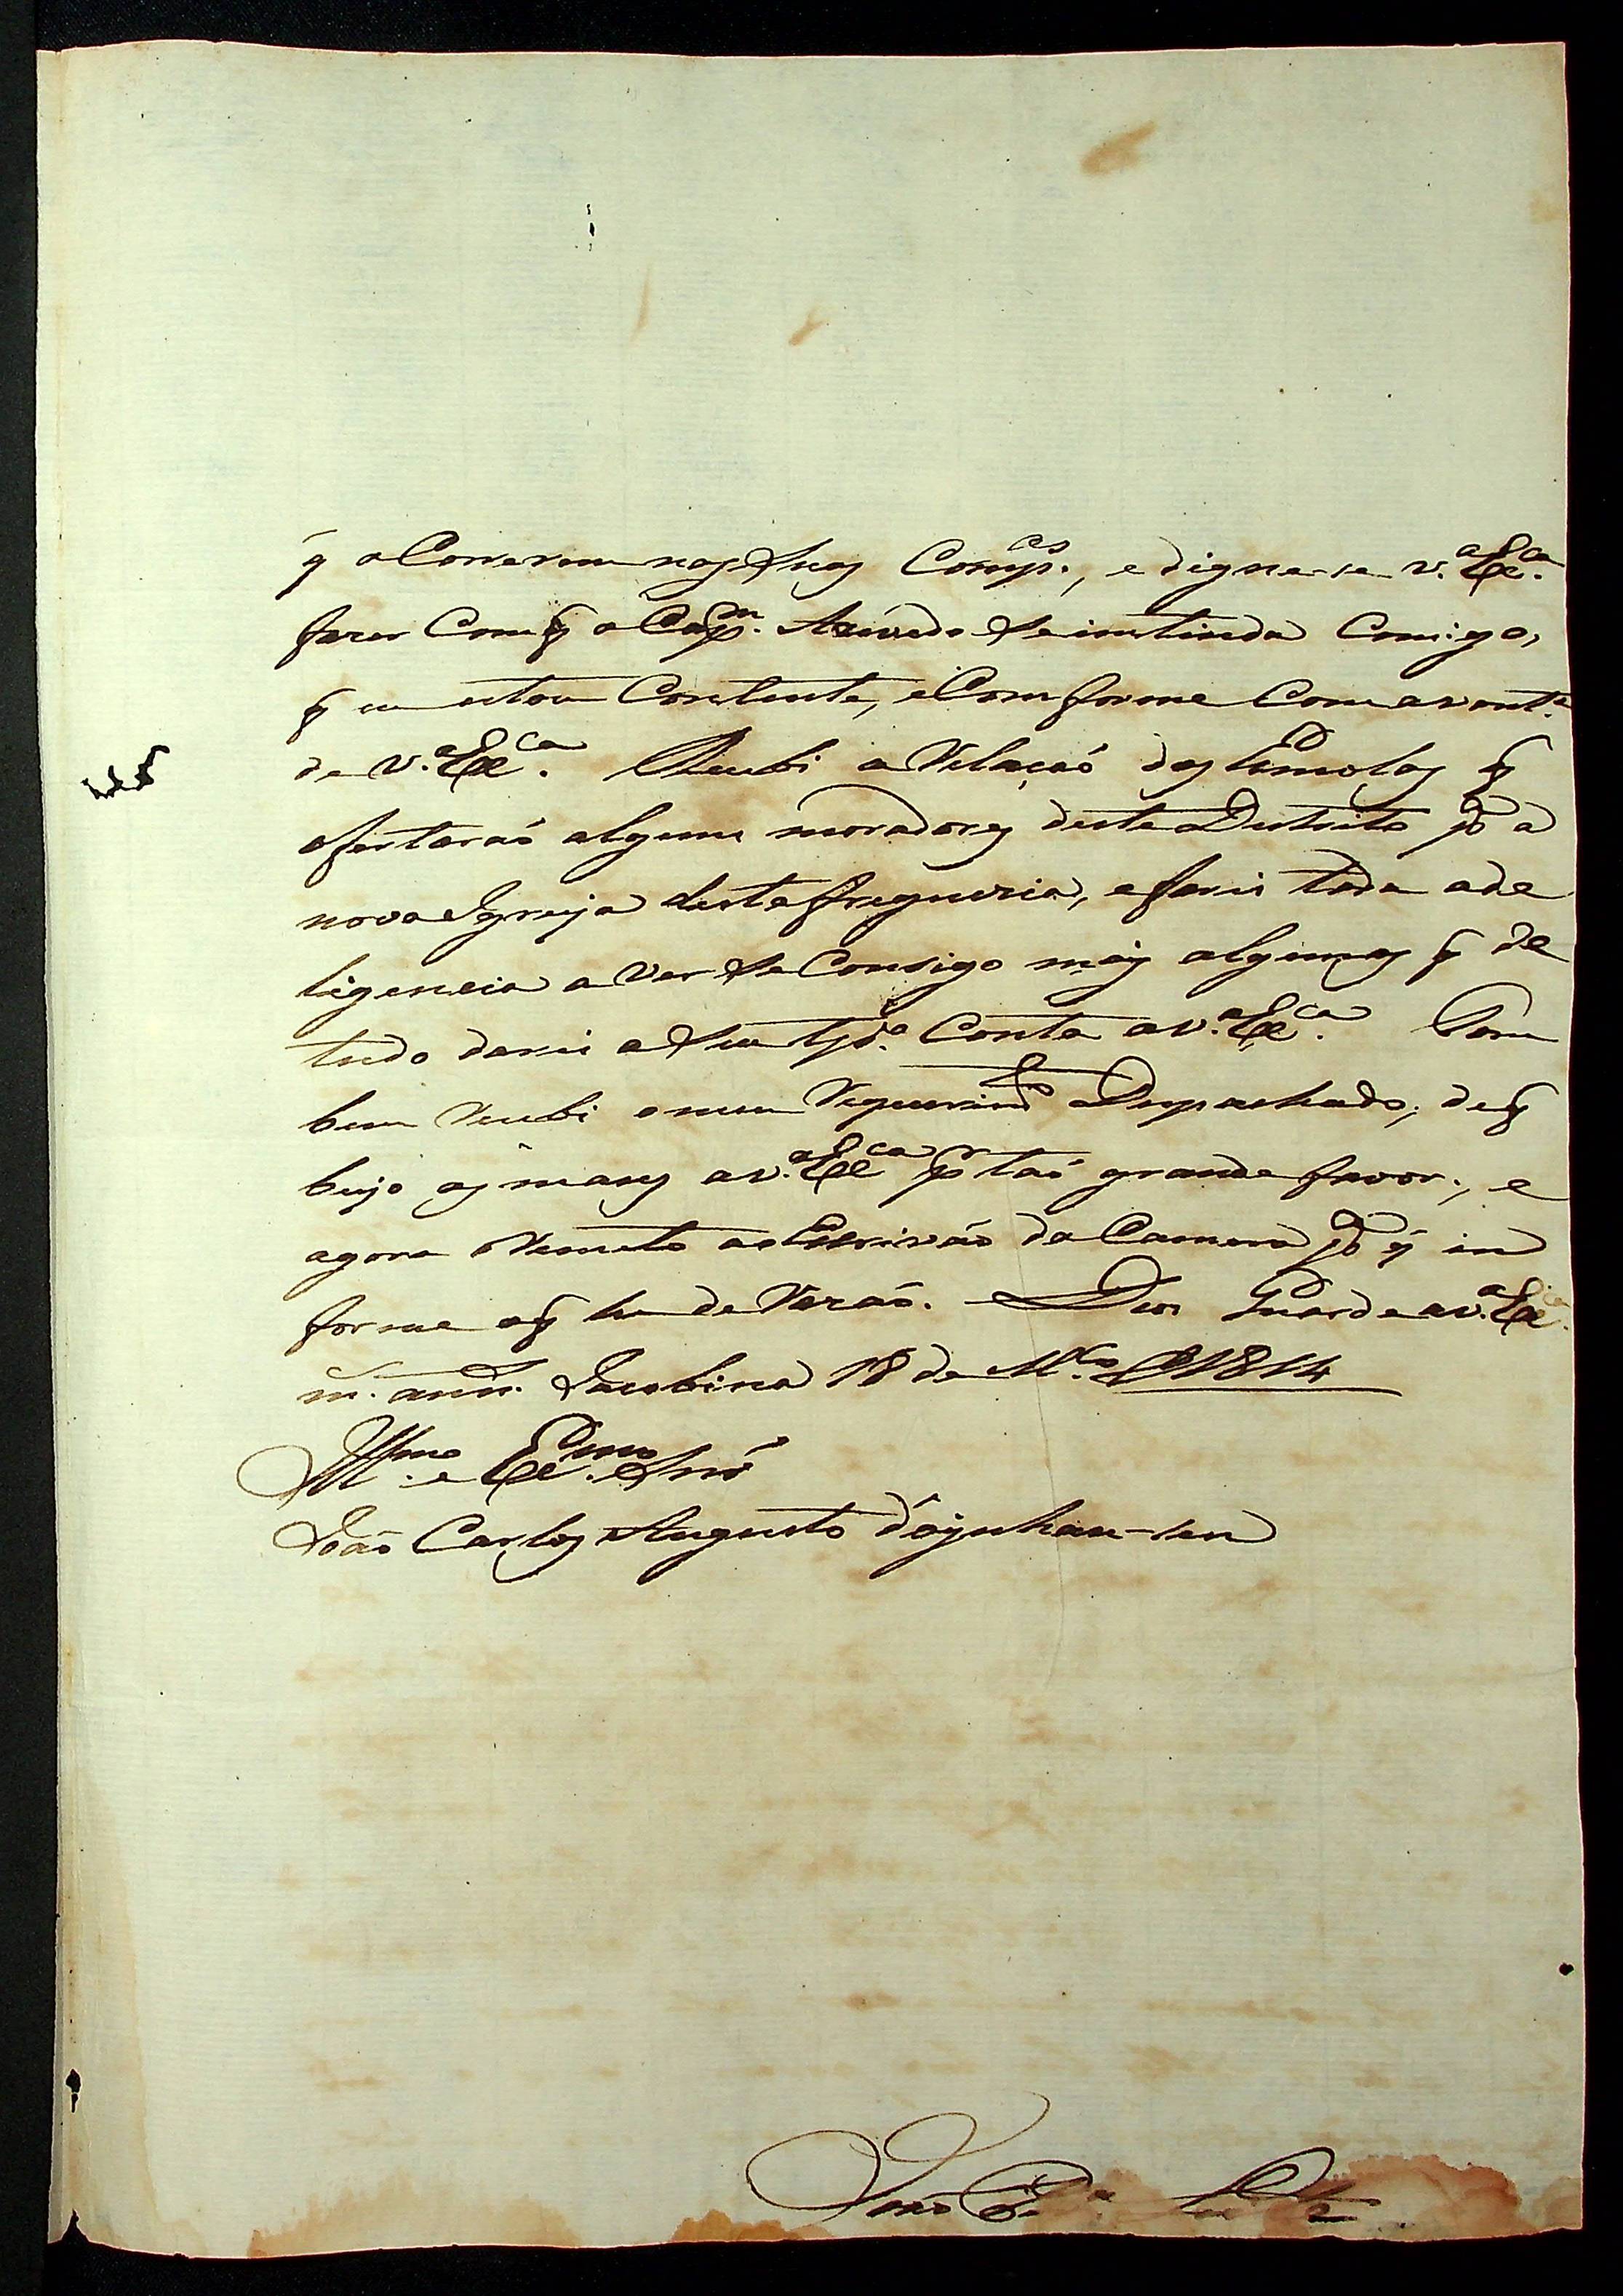 q̃ oCorerem nas Suas Comp.ces, edigne-se V.a Ex.ca
fazer Com q̃ o Cap.m Azevedo Se imtinda Comigo,
q̃ eu estou Contente, eComforme Com avont.e
de V.a Ex.ca. Recebi a Relaçaõ das Esmolas q̃
ofertaraõ alguns moradores deste Destrito p.a a
nova Igreija desta freguezia, efarei toda ade
ligencia a ver Se Consigo mais algumas q̃ de
tudo darei a Seu tp.o Conta aV.a Ex.ca. Tam
bem recebi o meu Requerim.to Despachado, de q̃
beijo as maos aV.a Ex.ca p.r taõ grande favor, e
agora Remeto ao Escrivaõ da Camera p.a q̃ in
forme oq̃ he de Razaõ. Deos Guarde aV.a Ex.ca
m.s ann.s Jacobina 18 de M.ço D 1814
Ill.mo e Ex.mo Snr̃
Joaõ Carlos Augusto d'Oyenhau-sen
Joaõ